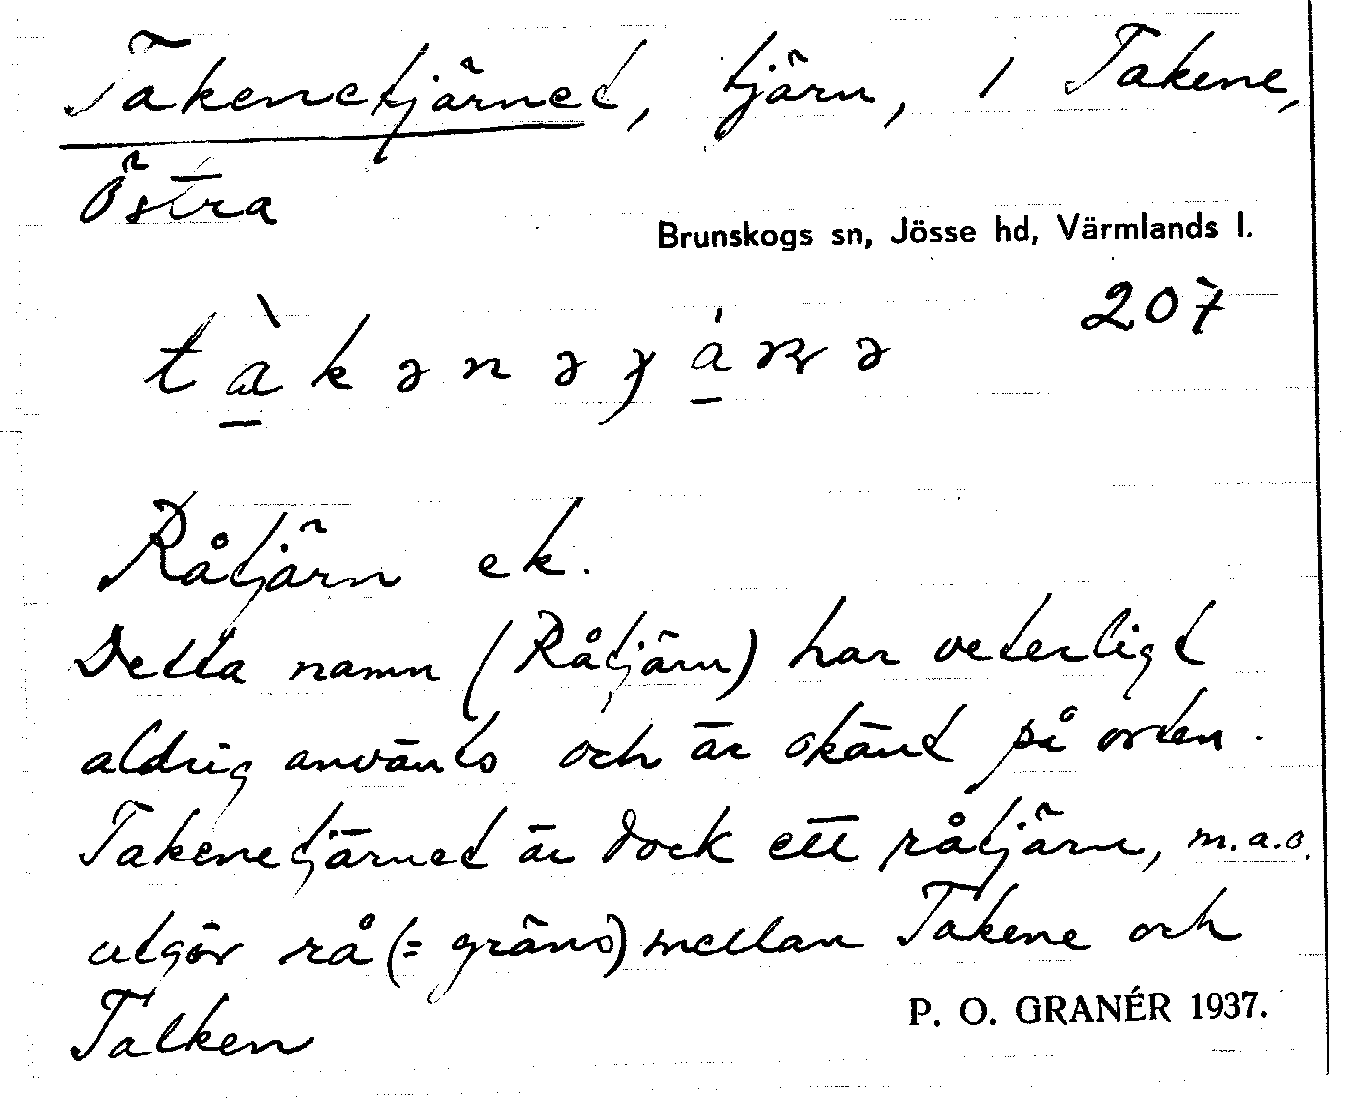 Takenetjärnet, tjärn, i Takene,
Östra
Brunskogs sn, Jösse hd, Värmlands l.
207
Råtjärn ek.
Detta namn (Råtjärn) har veterligt
aldrig använts och är okänt på orten.
Takenetjärnet är dock ett råtjärn, m.a.o.
utgör rå (= gräns) mellan Takene och
Talken
P. O. GRANÉR 1937.